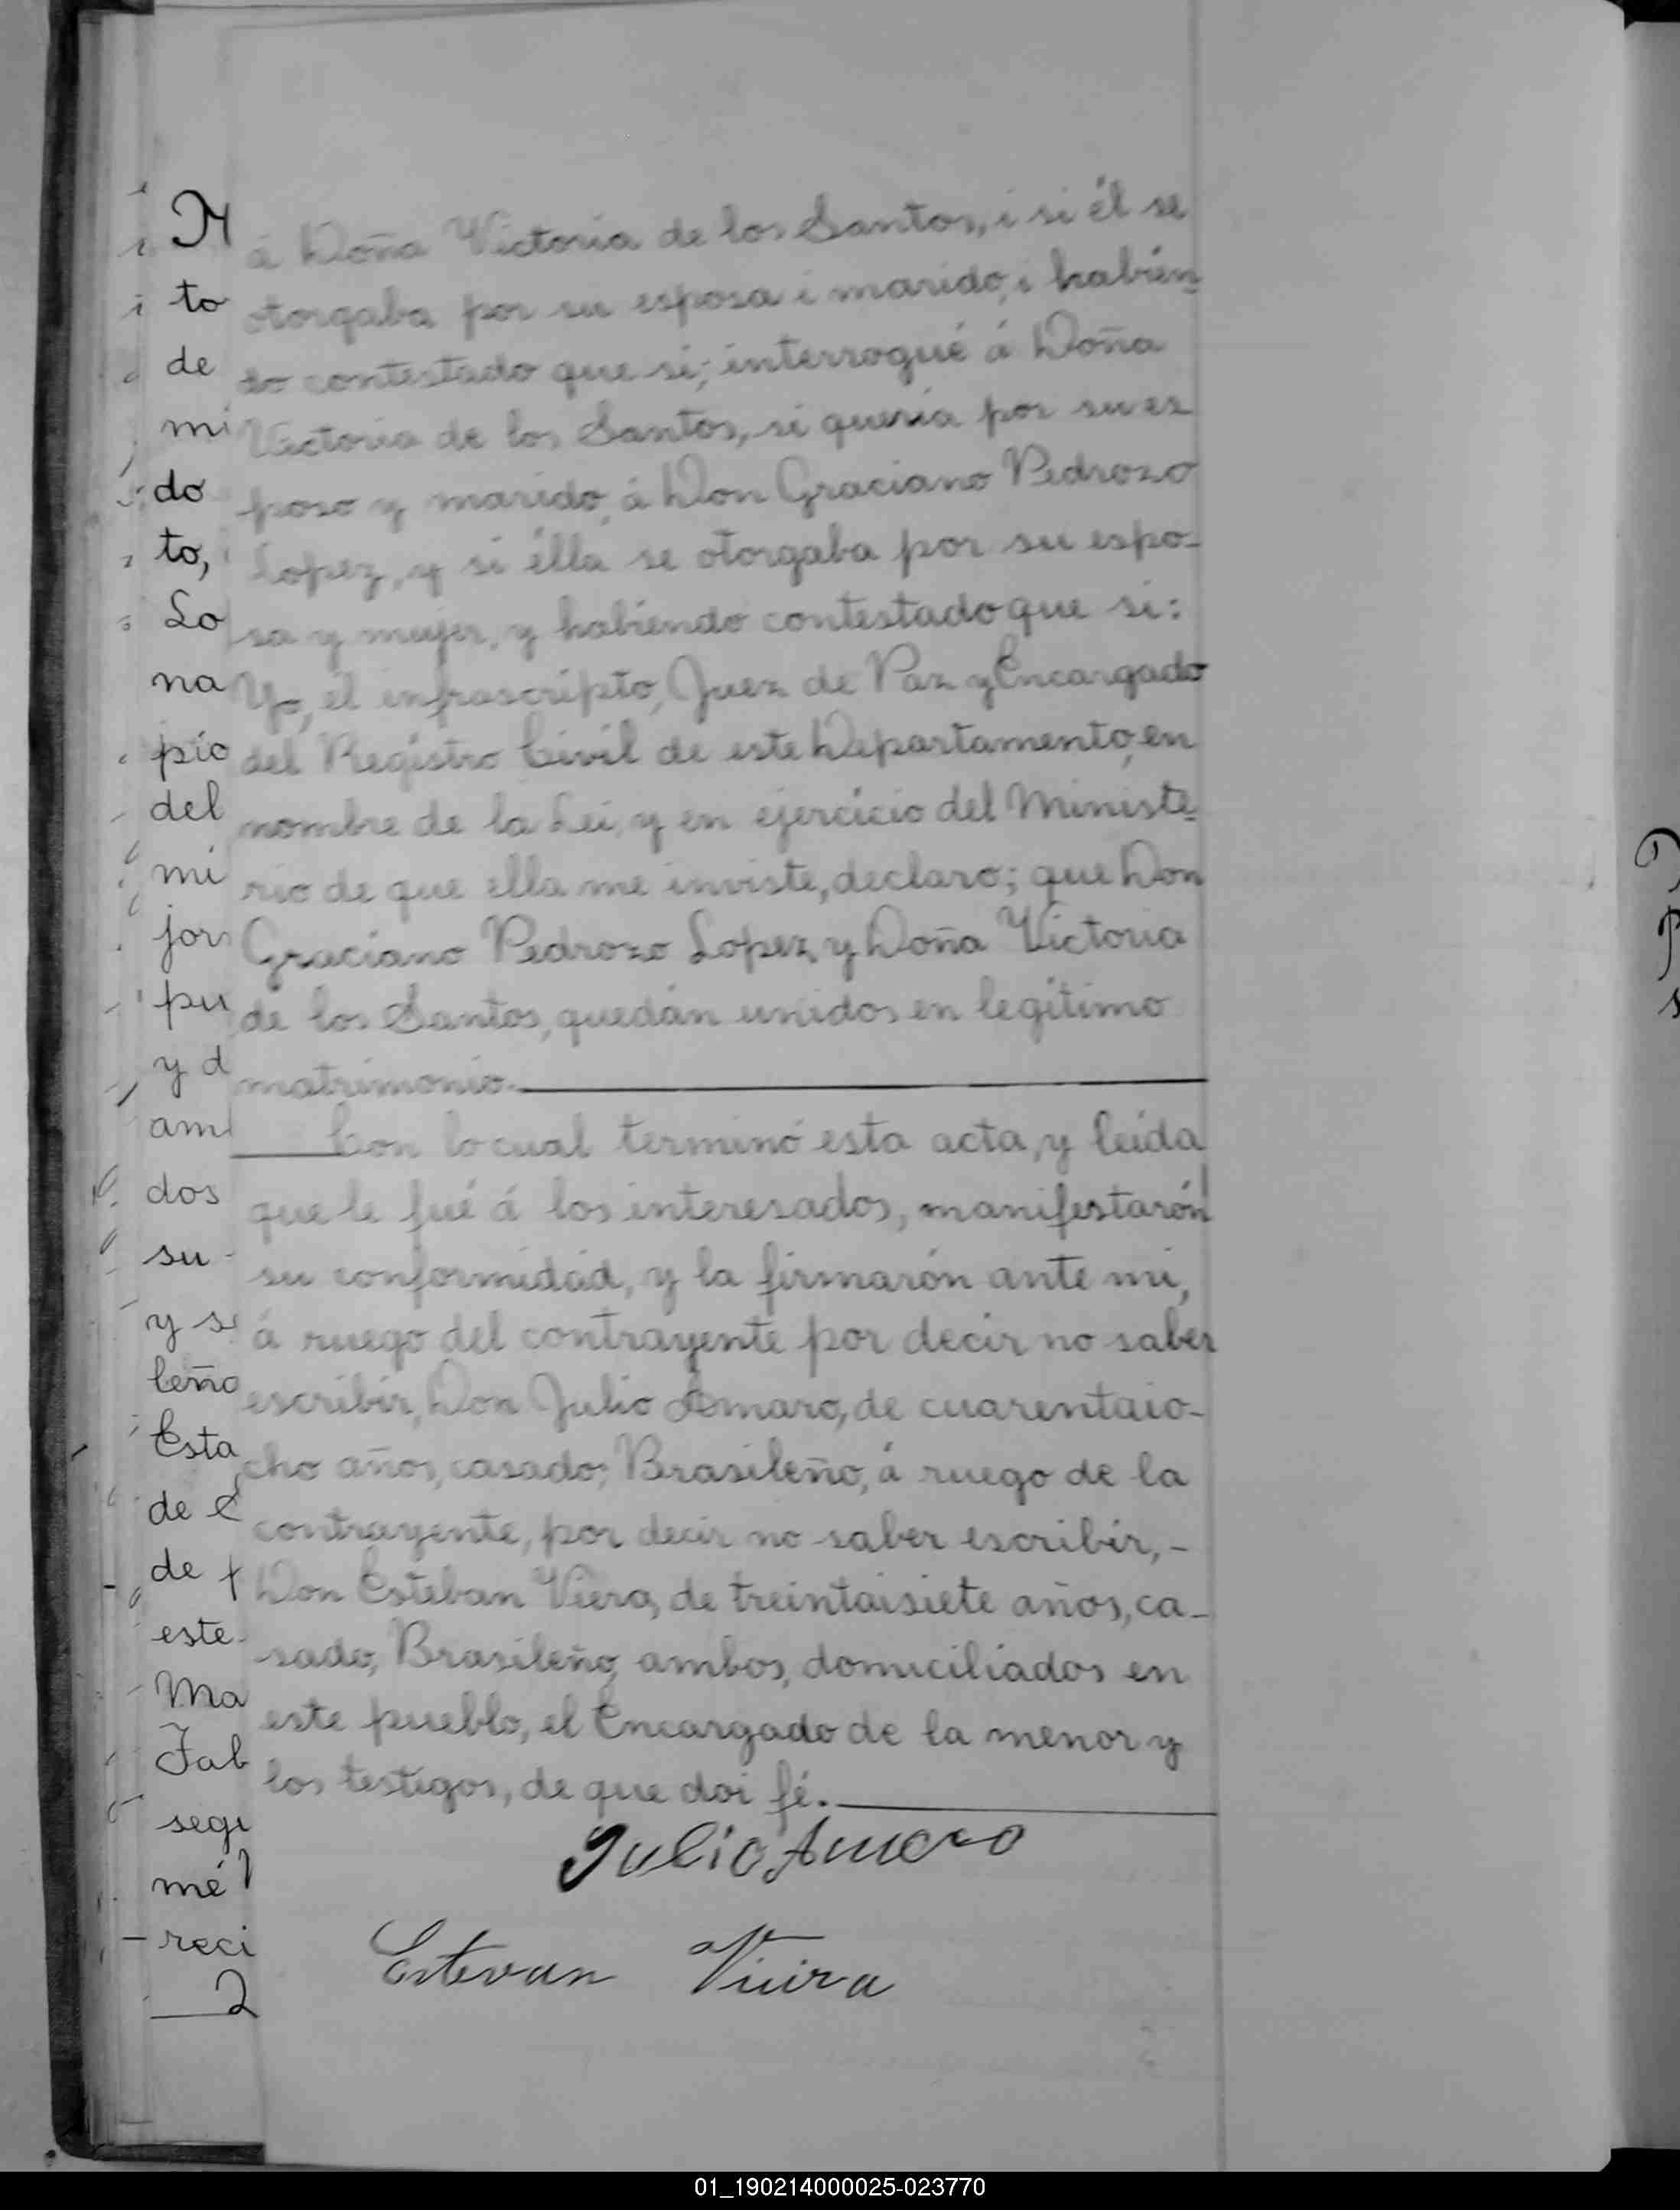 á Doña Victoria de los Santos, i si él se
otorgaba por su esposa i marido, i habien-
do contestado que si; interrogué á Doña
Victoria de los Santos, si queria por su es
poso y marido, á Don Graciano Pedrozo
Lopez, y si élla se otorgaba por su espo-
sa y mujer, y habiendo contestado que si:
Yo, él infrascripto, Juez de Paz y Encargado
del Registro Civil de este Departamento, en
nombre de la Lei, y en ejercicio del Ministe-
rio de que ella me inviste, declaro; que Don
Graciano Pedrozo Lopez, y Doña Victoria
de los Santos, quedán unidos en legítimo
matrimonio.
Con lo cual terminó esta acta, y leida
que le fué á los interesados, manifestarón
su conformidad, y la firmarón ante mi,
á ruego del contrayente por decir no saber
escribir, Don Julio Amaro, de cuarentaio-
cho años, casado; Brasileño, á ruego de la
contrayente, por decir no saber escribir, -
Don Esteban Viera, de treintaisiete años, ca-
sado, Brasileño, ambos, domiciliados en
este pueblo, el Encargado de la menor y
los testigos, de que doi fé.
Julio Amaro
Estevan Vieira
M
to
de
mi
do
to,
Lo
na
pio
del
mi
jor
pu
y d
am
dos
su
y se
leño
Esta
de
de
este
Ma
Fab
segu
mé
reci
2
01_190214000025-023770